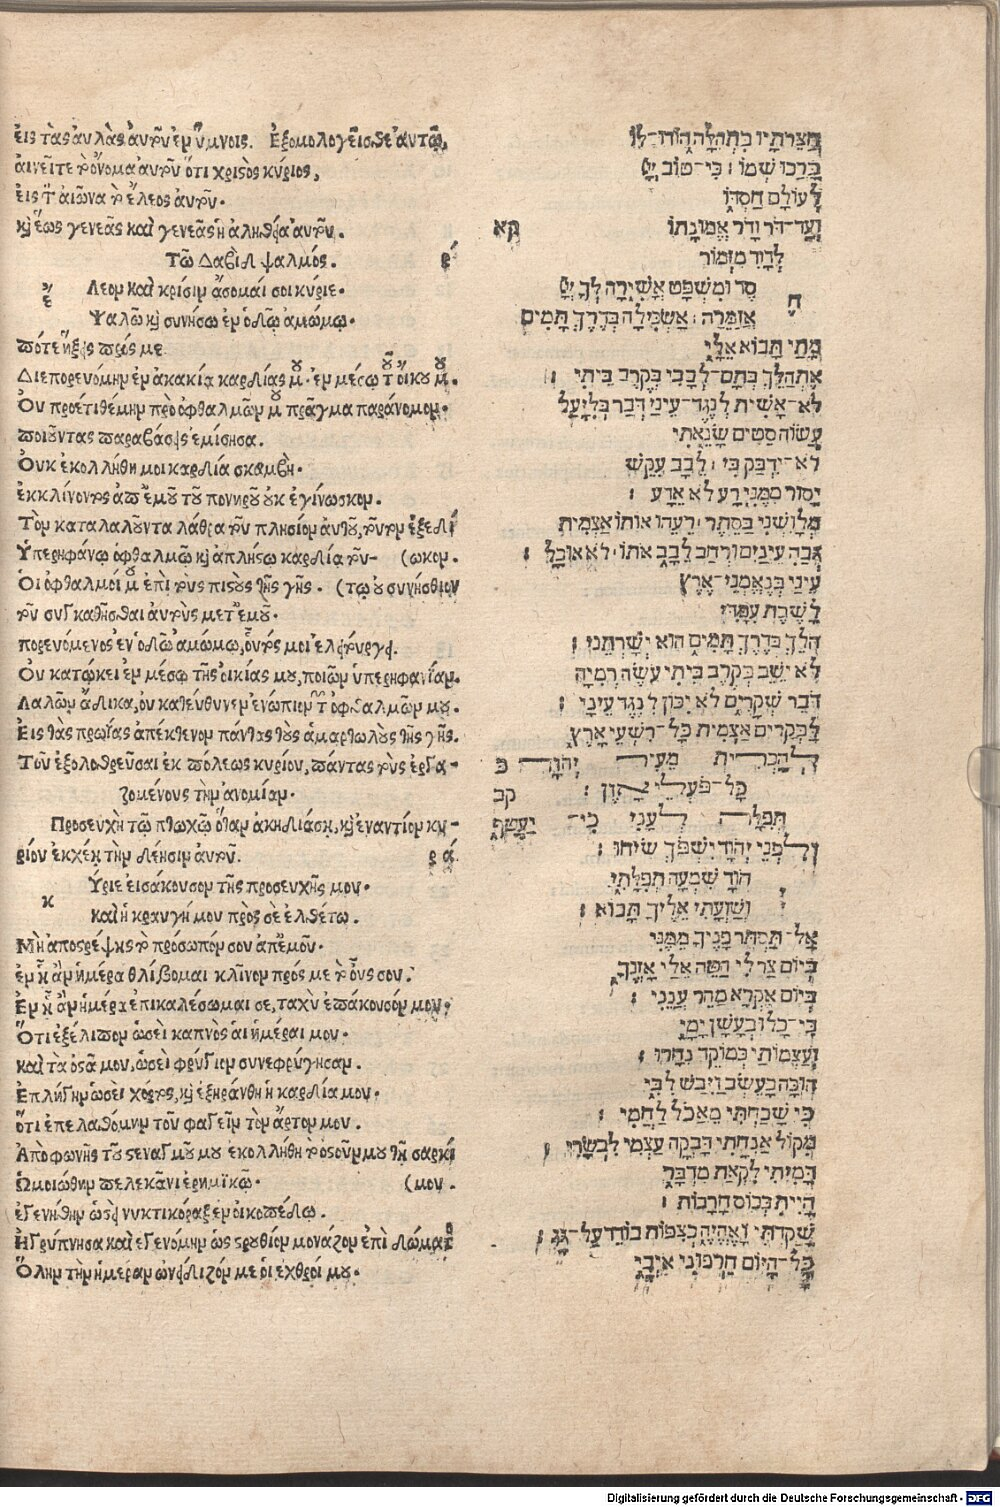 ἐις τὰς ἀυλὰς ἀυτου ἐν ὕμνοις. Ἐξομολογεῖσθε ἀυτῷ,
ἀινεῖτε τὸ ὄνομα ἀυτοῦ ὅτι χριστὸς κύριος,
ἐις τ̄ ἀιῶνα τὸ ἔλεος ἀυτοῦ.
κ̀ ἕως γενεᾶς καὶ γενεᾶς ἡ ἀλήθεια ἀυτοῦ.
Τῶ Δαβὶδ ψαλμός. ρ́
ἔ λεον καὶ κρίσιν ἄσομαί σοι κύριε.
Ψαλῶ κ̀ συνήσω ἐν ὁδῶ ἀμώμω.
πότε ἥξεις πρός με
Διεπορευόμην ἐν ἀκακία καρδίας μου. ἐν μέσω τοῦ ὄικου μου.
Ὀυ προέτιθέμην πρὸ ὀφθαλμῶν μου πρᾶγμα παράνομον.
ποιοῦντας παραβάσεις ἐμίσησα.
Ὀυκ ἐκολλήθη μοι καρδία σκαμβὴ.
ἐκκλίνοντος ἀπ ἐμοῦ τοῦ πονηροῦ ὀυκ ἐγίνωσκον.
Τὸν καταλαλοῦντα λάθρα τοῦ πλησίον ἀυτοῦ, τοῦτον ἐξεδί
Ὑπερηφάνω ὀφθαλμῶ κ̀ ἀπλήστω καρδία τού- (ωκον.
Ὁι ὀφθαλμοί μου ἐπὶ τοὺς πιστοὺς τῆς γῆς. (τω ὀυ συνήσθιον
τοῦ συγκαθῆσθαι ἀυτοὺς μετ ἐμοῦ.
πορευόμενος ἐν ὁδῶ ἀμώμω, ὁῦτός μοι ἐλειτούργει.
Ὀυ κατώκει ἐν μέσω τῆς ὀικίας μου, ποιῶν ὑπερηφανίαν.
Λαλῶν ἄδικα, ὀυ κατεύθυνεν ἐνώπιον τῶν ὀφθαλμῶν μου.
Ἐις τὰς πρωΐας ἀπέκτενον πάντας τοὺς ἁμαρτωλοὺς τῆς γῆς.
Τοῦ ἐξολοθρεῦσαι ἐκ πόλεως κυρίου, πάντας τοὺς ἐργα-
ζομένους τὴν ἀνομίαν.
Προσευχὴ τῷ πτωχῶ ὅταν ἀκηδιάση, κ̀ ἐναντίον κυ-
ρίου ἐκχέη τὴν δέησιν ἀυτοῦ. ρά
κ Ύριε ἐισάκουσον τῆς προσευχῆς μου.
καὶ ἡ κραυγή μου πρὸς σὲ ἐλθέτω.
Μὴ ἀποστρέψης τὸ πρόσωπόν σου ἀπ ἐμοῦ.
ἐν ᾗ ἂν ἡμέρα θλίβομαι κλῖνον πρός με τὸ ὀῦς σου.
Ἐν ᾗ ἂν ἡμέρα ἐπικαλέσωμαι σε, ταχὺ ἐπάκουσόν μου.
Ὅτι ἐξέλιπον ὡσεὶ καπνὸς ἁι ἡμέραι μου.
καὶ τὰ ὀστᾶ μου, ὡσεὶ φρύγιον συνεφρύγησαν.
Ἐπλήγην ὡσεὶ χόρτος, κ̀ ἐξηράνθη ἡ καρδία μου.
ὅτι ἐπελαθόμην τοῦ φαγεῖν τὸν ἄρτον μου.
Ἀπὸ φωνῆς τοῦ στεναγμοῦ μου ἐκολλήθη τὸ ὀστοῦν μου τῇ σαρκί
Ὡμοιώθην πελεκᾶνι ἐρημϊκῷ. (μου.
ἐγενήθην ὡσεὶ νυκτικόραξ ἐν ὀικοπέδω.
Ἠγρύπνησα καὶ ἐγενόμην ὡς στρουθίον μονάζον ἐπὶ δώματος
Ὅλην τὴν ἡμέραν ὠνείδιζόν με ὁι ἐχθροί μου.
חֲצֵרֹתָיו בִּתְהִלָּה הוֹדוּ־לוֹ
בָּרְכוּ שְׁמוֹ : כִּי־טוֹב יְיָ
לְעוֹלָם חַסְדּוֹ
וְעַד־דֹּר וָדֹר אֱמוּנָתוֹ קא
לְדָוִד מִזְמוֹר
חֶ סֶד וּמִשְׁפָּט אָשִׁירָה לְךָ יְיָ
אֲזַמֵּרָה : אַשְׂכִּילָה בְּדֶרֶךְ תָּמִים
מָתַי תָּבוֹא אֵלָי
אֶתְהַלֵּךְ בְּתָם־לְבָבִי בְּקֶרֶב בֵּיתִי :
לֹא־אָשִׁית לְנֶגֶד־עֵינַי דְּבַר בְּלִיָּעַל
עֲשׂוֹה סֵטִים שָׂנֵאתִי
לֹא־יִדְבַּק בִּי : לֵבָב עִקֵּשׁ
יָסוּר מִמֶּנִּי רָע לֹא אֵדָע :
מְלוֹשְׁנִי בַסֵּתֶר רֵעֵהוּ אוֹתוֹ אַצְמִית
גְּבַהּ עֵינַיִם וּרְחַב לֵבָב אֹתוֹ לֹא אוּכָל :
עֵינַי בְּנֶאֶמְנֵי־אֶרֶץ
לָשֶׁבֶת עִמָּדִי
הֹלֵךְ בְּדֶרֶךְ תָּמִים הוּא יְשָׁרְתֵנִי :
לֹא יֵשֵׁב בְּקֶרֶב בֵּיתִי עֹשֵׂה רְמִיָּה
דֹּבֵר שְׁקָרִים לֹא יִכּוֹן לְנֶגֶד עֵינָי :
לַבְּקָרִים אַצְמִית כָּל־רִשְׁעֵי אָרֶץ
לְהַכְרִית מֵעִיר יְהוָה כ
כָּל־פֹּעֲלֵי אָוֶן : קב
תְּפִלָּה לְעָנִי כִי־ יַעֲטֹף
וְלִפְנֵי יְהוָה יִשְׁפֹּךְ שִׂיחוֹ :
י הוָֹה שִׁמְעָה תְפִלָּתִי
וְשַׁוְעָתִי אֵלֶיךָ תָבוֹא :
אַל־תַּסְתֵּר פָּנֶיךָ מִמֶּנִּי
בְּיוֹם צַר לִי הַטֵּה אֵלַי אָזְנֶךָ
בְּיוֹם אֶקְרָא מַהֵר עֲנֵנִי :
כִּי־כָלוּ בְעָשָׁן יָמָי
וְעַצְמוֹתַי כְּמוֹקֵד נִחָרוּ :
הוּכָּה כָעֵשֶׂב וַיִּבַשׁ לִבִּי
כִּי שָׁכַחְתִּי מֵאֲכֹל לַחְמִי :
מִקּוֹל אַנְחָתִי דָּבְקָה עַצְמִי לִבְשָׂרִי :
דָּמִיתִי לִקְאַת מִדְבָּר
הָיִיתִי כְּכוֹס חֳרָבוֹת :
שָׁקַדְתִּי וָאֶהְיֶה כְּצִפּוֹר בּוֹדֵד עַל־גָּג :
כָּל־הַיּוֹם חֵרְפוּנִי אוֹיְבָי
Digitalisierung gefördert durch die Deutsche Forschungsgemeinschaft - DFG